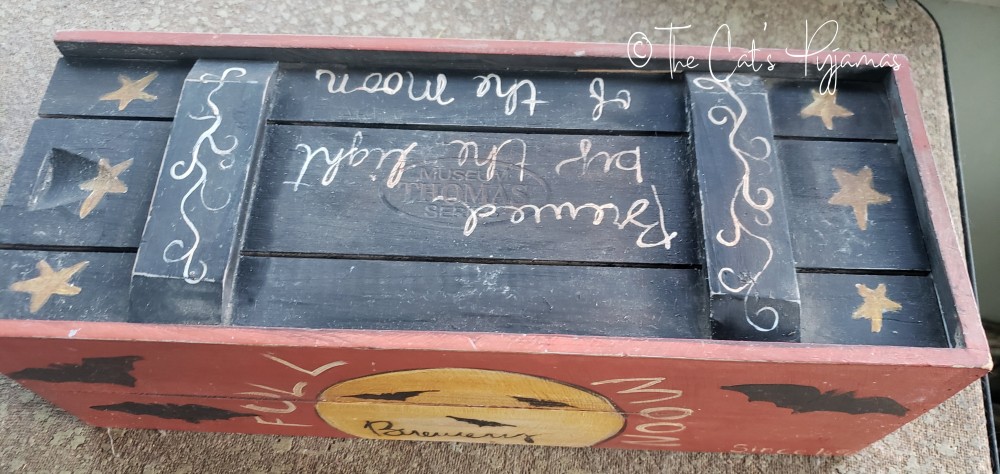 © The Cat's Pyjamas
Brewed
by the light
of the Moon
MUSEUM
THOMAS
SERIES
FULL MOON
Brewery
Since